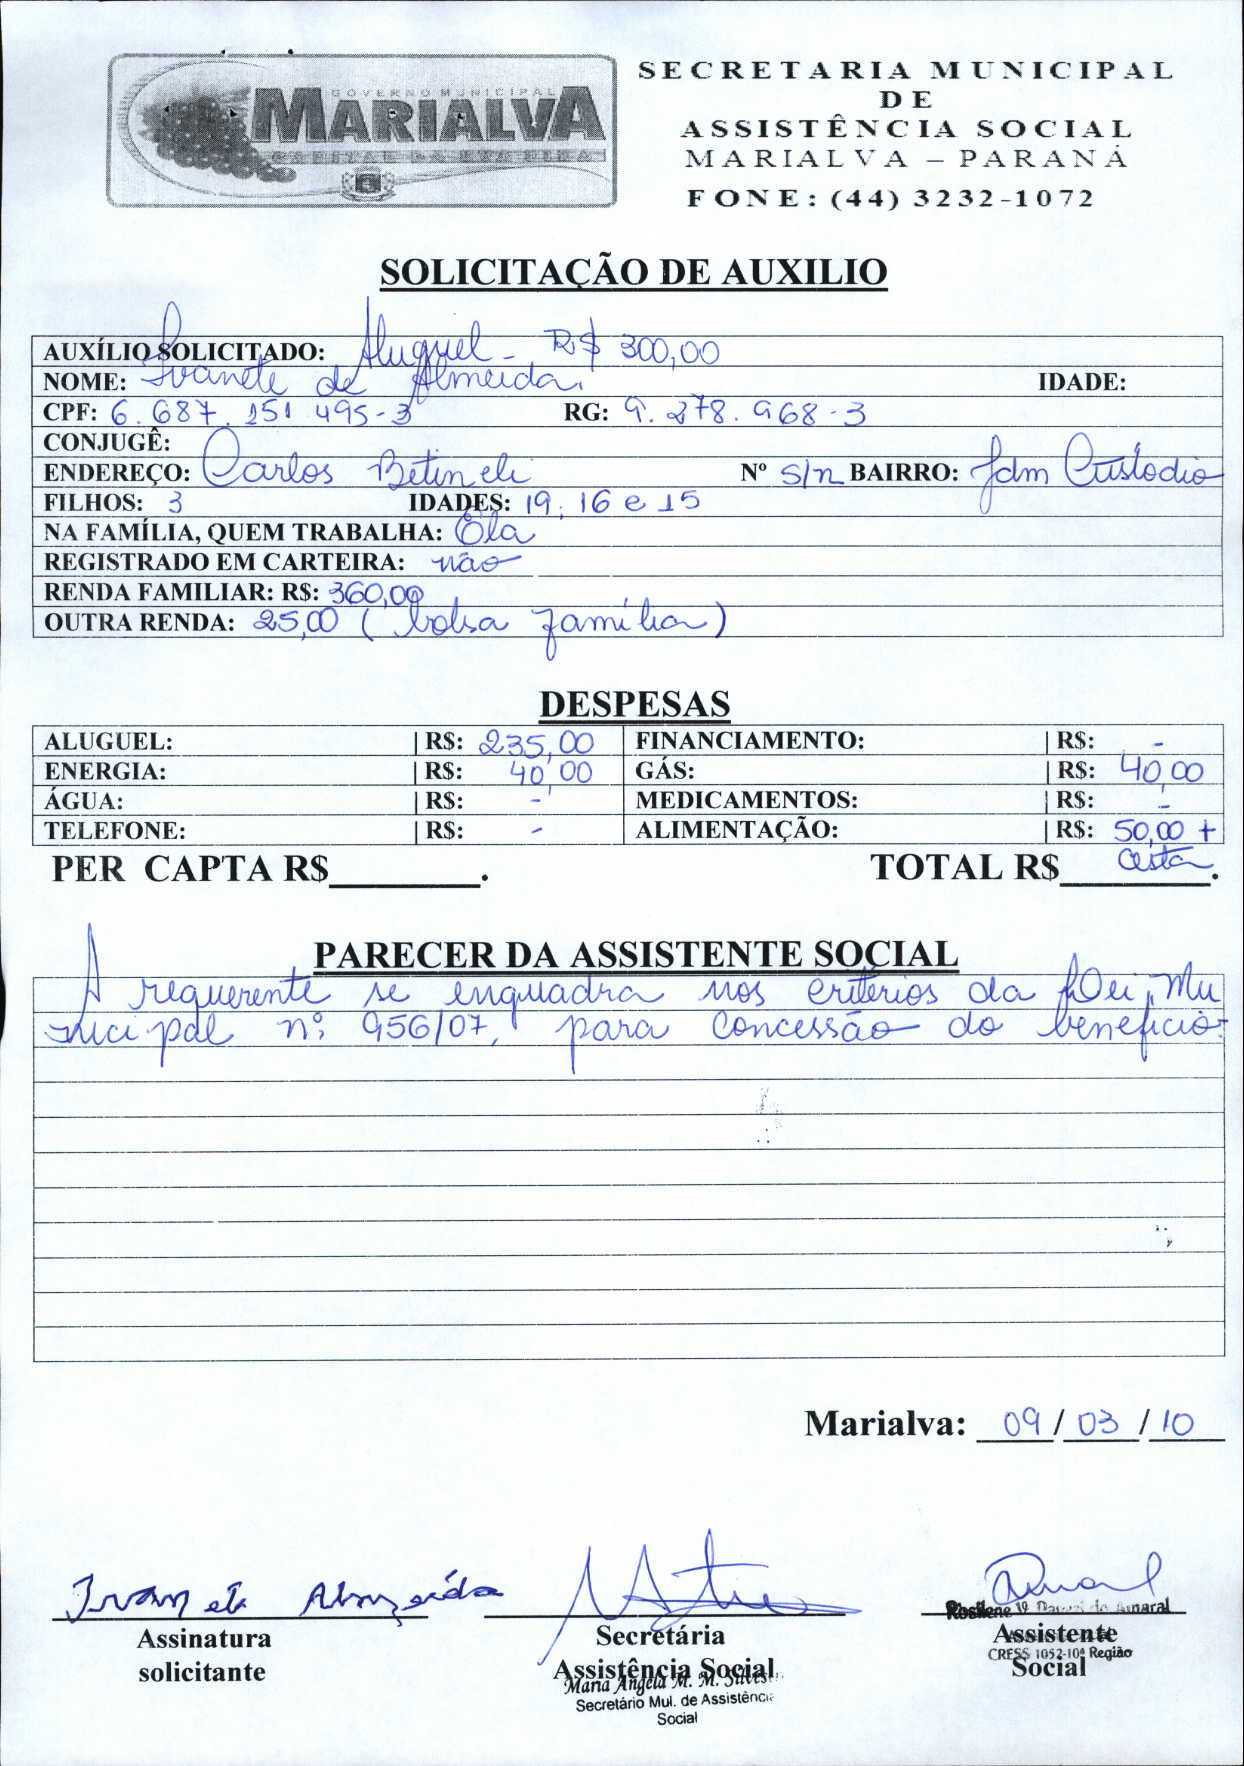 GOVERNO MUNICIPAL
MARIALVA
CAPITAL DA UVA FINA
SECRETARIA MUNICIPAL
DE
ASSISTÊNCIA SOCIAL
MARIALVA – PARANÁ
FONE: (44) 3232-1072
SOLICITAÇÃO DE AUXILIO
AUXÍLIO SOLICITADO: Aluguel - R$ 300,00
NOME: Ivanete de Almeida. IDADE:
CPF: 6.687.151 495-3 RG: 9.278.968-3
CONJUGÊ:
ENDEREÇO: Carlos Betineli Nº s/n BAIRRO: Jdm Custódio
FILHOS: 3 IDADES: 19, 16 e 15
NA FAMÍLIA, QUEM TRABALHA: Ela
REGISTRADO EM CARTEIRA: não
RENDA FAMILIAR: R$: 360,00
OUTRA RENDA: 25,00 (bolsa família)
DESPESAS
ALUGUEL: | R$: 235,00 FINANCIAMENTO: | R$: -
ENERGIA: | R$: 40,00 GÁS: | R$: 40,00
ÁGUA: | R$: - MEDICAMENTOS: | R$: -
TELEFONE: | R$: - ALIMENTAÇÃO: | R$: 50,00 +
PER CAPTA R$________. TOTAL R$ cesta.
PARECER DA ASSISTENTE SOCIAL
A requerente se enquadra nos critérios da Lei Mu
nicipal nº 956/07, para concessão do benefício.
Marialva: 09/03/10
Ivanete Almeida
Assinatura
solicitante
Secretária
Assistência Social
Maria Angela M. M.
Secretário Mul. de Assistência
Social
Amaral
Assistente
CRESS 1052-10ª Região
Social